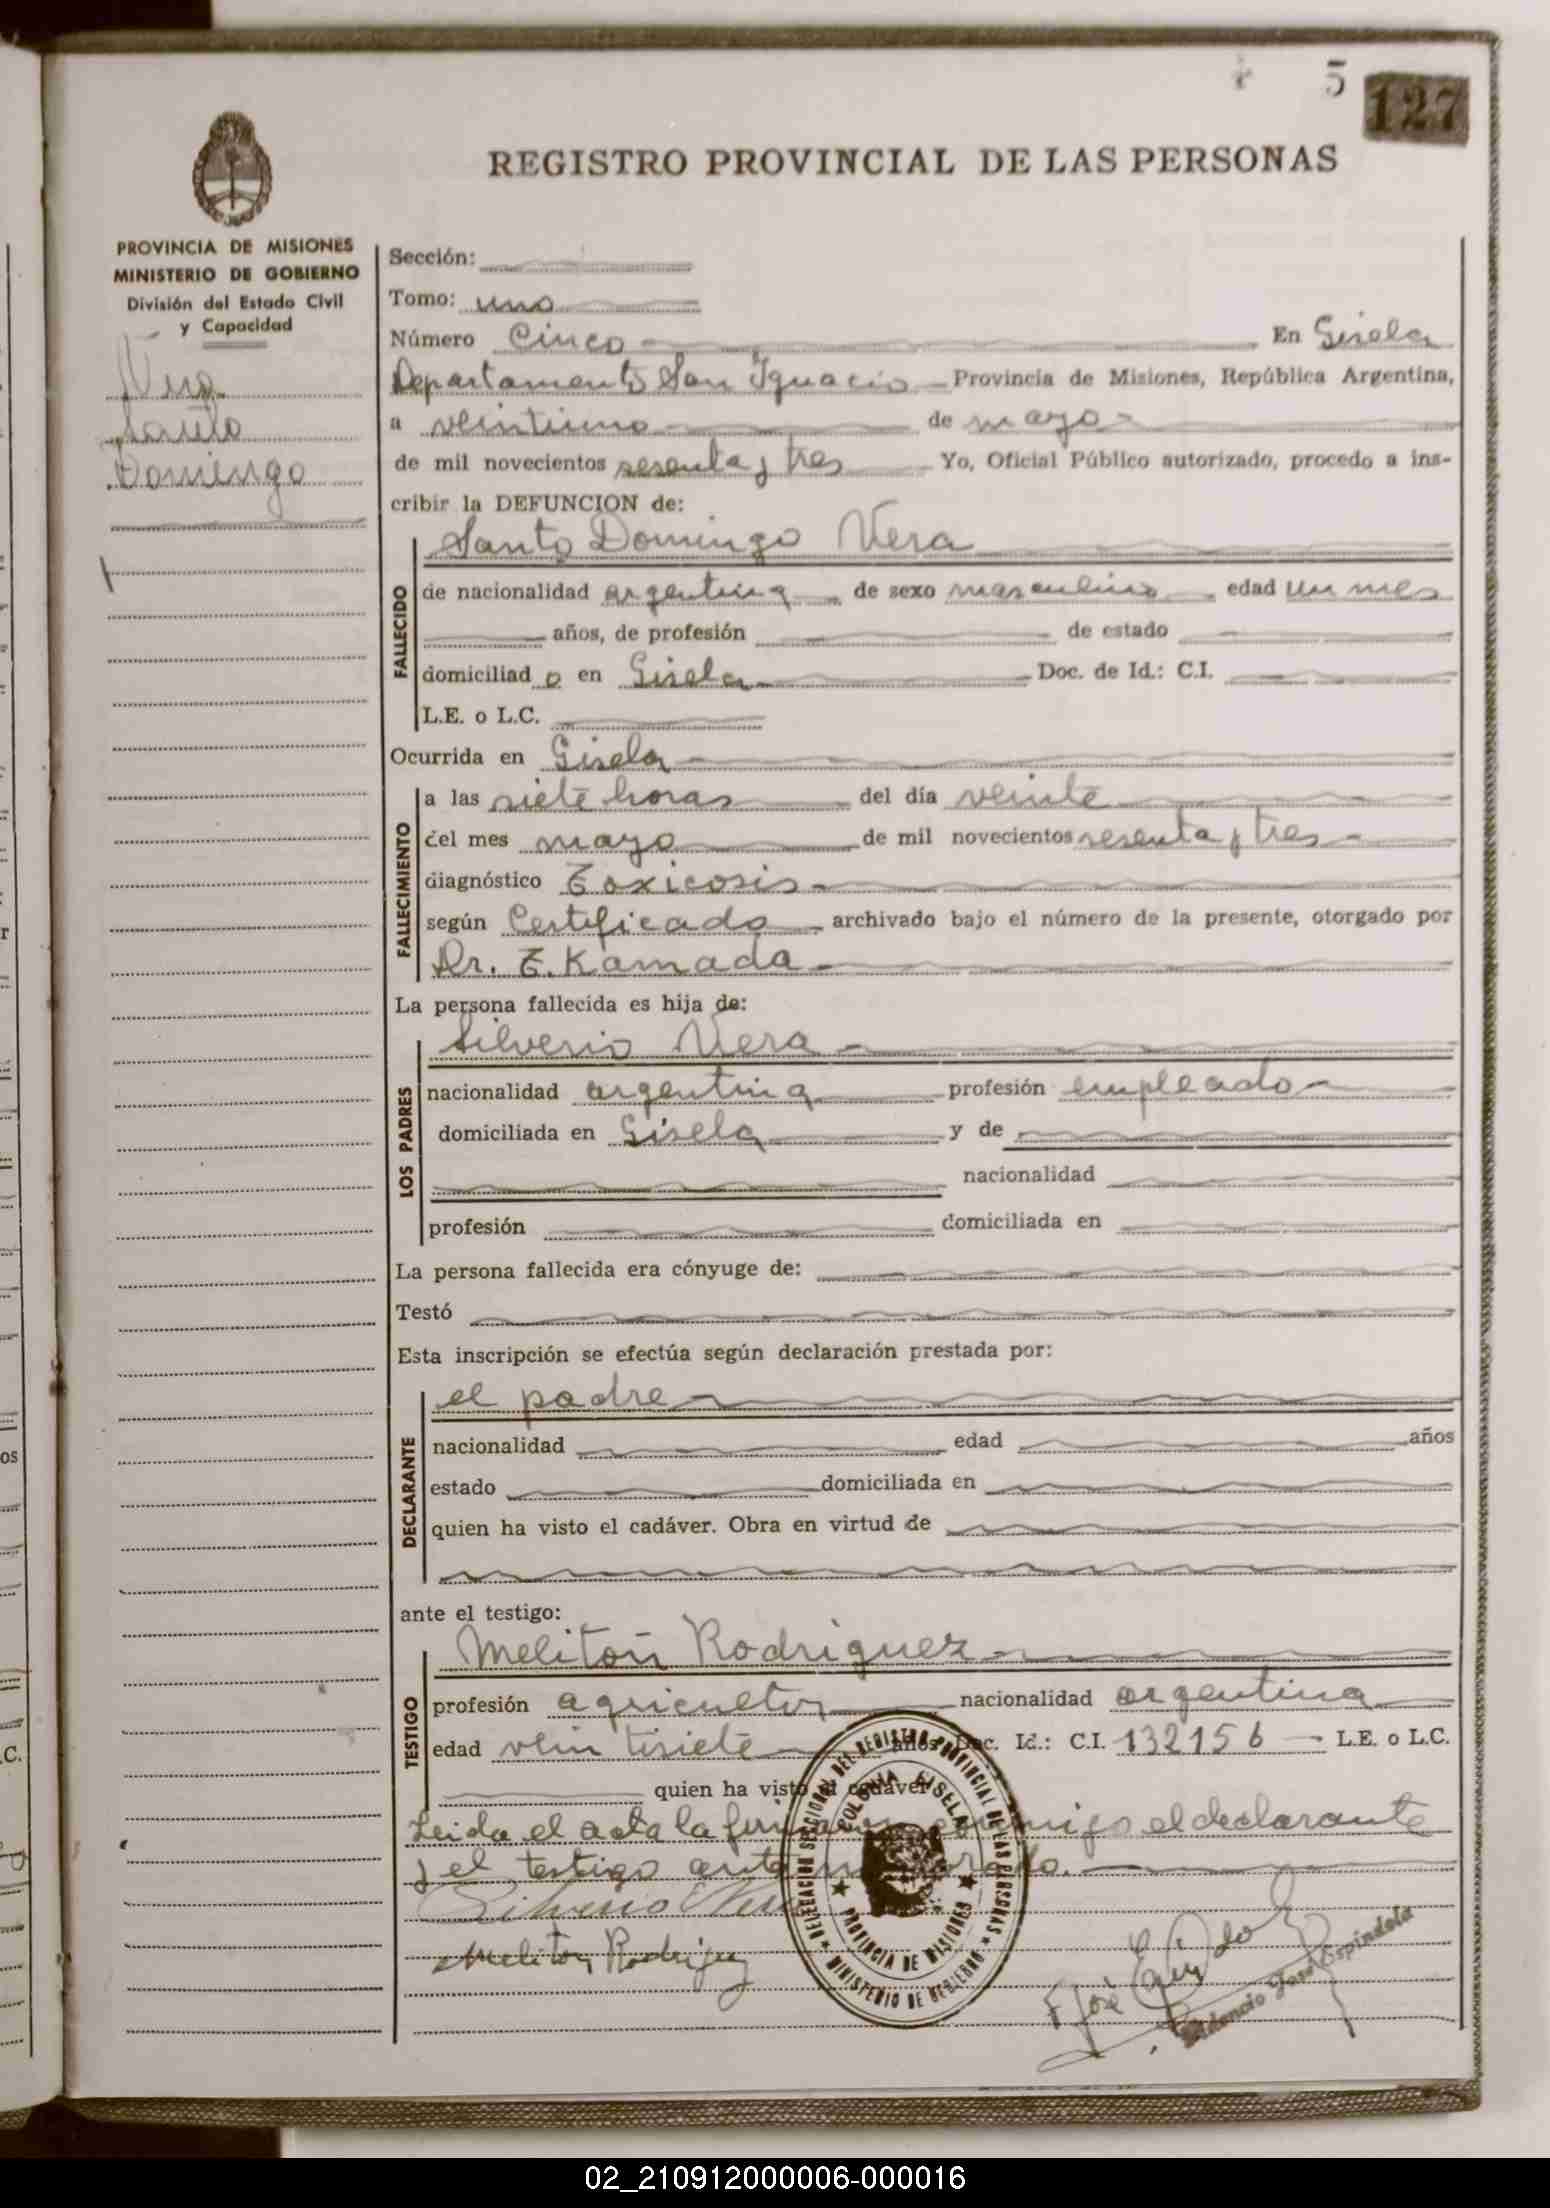 5
127
REGISTRO PROVINCIAL DE LAS PERSONAS
PROVINCIA DE MISIONES
MINISTERIO DE GOBIERNO
División del Estado Civil
y Capacidad
Vera
Santo
Domingo
Sección:
Tomo: uno
Número Cinco En Gisela
Departamento San Ignacio Provincia de Misiones, República Argentina,
a veintiuno de mayo
de mil novecientos sesenta y tres Yo, Oficial Público autorizado, procedo a ins-
cribir la DEFUNCION de:
Santo Domingo Vera
FALLECIDO
de nacionalidad argentina de sexo masculino edad un mes
años, de profesión de estado
domiciliad o en Gisela Doc. de Id.: C.I.
L.E. o L.C.
Ocurrida en Gisela
FALLECIMIENTO
a las siete horas del día veinte
del mes mayo de mil novecientos sesenta y tres
diagnóstico Toxicosis
según Certificado archivado bajo el número de la presente, otorgado por
Dr. T. Kamada
La persona fallecida es hija de:
Silverio Vera
LOS PADRES
nacionalidad argentina profesión empleado
domiciliada en Gisela y de
nacionalidad
profesión domiciliada en
La persona fallecida era cónyuge de:
Testó
Esta inscripción se efectúa según declaración prestada por:
el padre
DECLARANTE
nacionalidad edad años
estado domiciliada en
quien ha visto el cadáver. Obra en virtud de
ante el testigo:
Meliton Rodriguez
TESTIGO
profesión agricultor nacionalidad argentina
edad veintisiete años Doc. Id.: C.I. 132156 L.E. o L.C.
quien ha visto el cadáver
Leida el acta la firman conmigo el declarante
y el testigo
Silverio Vera
Meliton Rodriguez
DELEGACION SECCIONAL DEL REGISTRO PROVINCIAL DE LAS PERSONAS
MINISTERIO DE GOBIERNO
COLONIA GISELA
PROVINCIA DE MISIONES
José Espindola
02_210912000006-000016